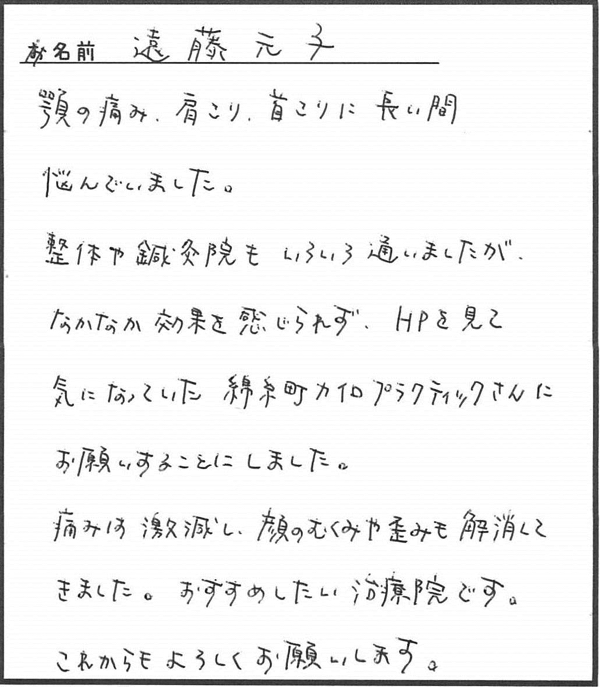 お名前 遠藤元子
顎の痛み、肩こり、首こりに長い間
悩んでいました。
整体や鍼灸院もいろいろ通いましたが、
なかなか効果を感じられず、HPを見て
気になっていた綿糸町カイロプラクティックさんに
お願いすることにしました。
痛みは激減し、顔のむくみや歪みも解消して
きました。おすすめしたい治療院です。
これからもよろしくお願いします。